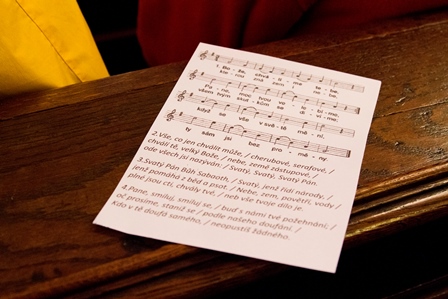 1. Bo - že, chvá - lí - me te - be,
Pa - ne, moc tvou ve - le - bí - me,
všem tvým skut - kům se di - ví - me,
když se vše v svě - tě mě - ní,
ty sám jsi bez pro - mě - ny.
2. Vše, co jen chválit může, / cherubové, serafové, /
chválí tě, velký Bože, / nebe, zemé zástupové, /
ode všech jsi nazýván: / Svatý, Svatý, Svatý Pán.
3. Svatý Pán Bůh Sabaoth, / Svatý, jenž řídí národy, /
jenž pomáhá z běd a psot, / Nebe, zem, povětří, vody /
plné jsou cti, chvály tvé, / neb vše tvoje dílo je.
4. Pane, smiluj, smiluj se, / buď s námi tvé požehnání, /
ó, prosíme, staniž se / podle našeho doufání. /
Kdo v tě doufá samého, / neopustíš žádného.